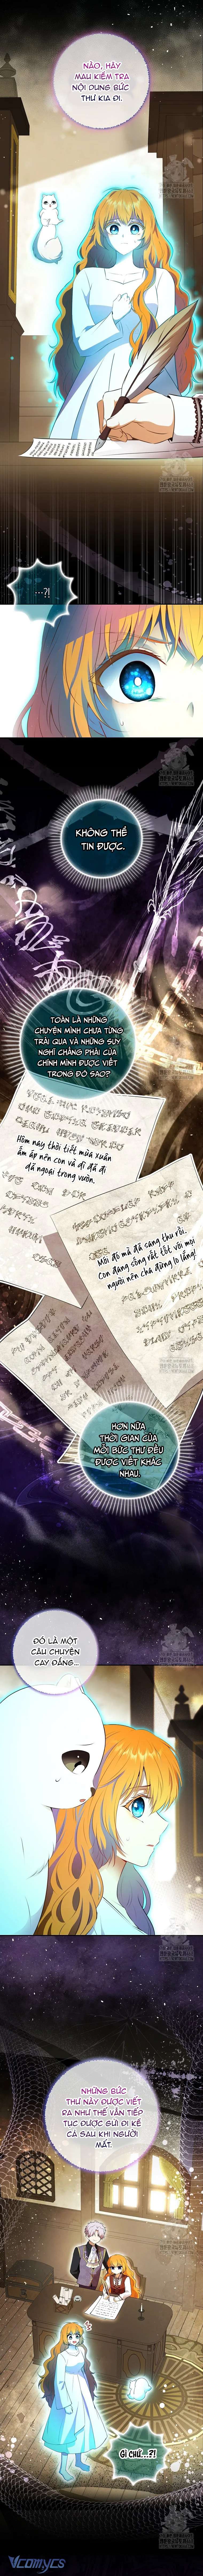 NÀO, HÃY
MAU KIỂM TRA
NỘI DUNG BỨC
THƯ KIA ĐI.
...?!
KHÔNG THỂ
TIN ĐƯỢC.
TOÀN LÀ NHỮNG
CHUYỆN MÌNH CHƯA TỪNG
TRẢI QUA VÀ NHỮNG SUY
NGHĨ CHẲNG PHẢI CỦA
CHÍNH MÌNH ĐƯỢC VIẾT
TRONG ĐÓ SAO?
Hôm nay thời tiết mùa xuân
ấm áp nên con và dì đã đi
dã ngoại trong vườn.
Mới đó mà đã sang thu rồi.
Con đang sống rất tốt với mọi
người nên cha đừng lo lắng!
HƠN NỮA
THỜI GIAN CỦA
MỖI BỨC THƯ ĐỀU
ĐƯỢC VIẾT KHÁC
NHAU.
ĐÓ LÀ MỘT
CÂU CHUYỆN
CAY ĐẮNG...
NHỮNG BỨC
THƯ NÀY ĐƯỢC VIẾT
RA NHƯ THỂ VẪN TIẾP
TỤC ĐƯỢC GỬI ĐI KỂ
CẢ SAU KHI NGƯƠI
MẤT.
GÌ CHỨ...?!
Vcomycs